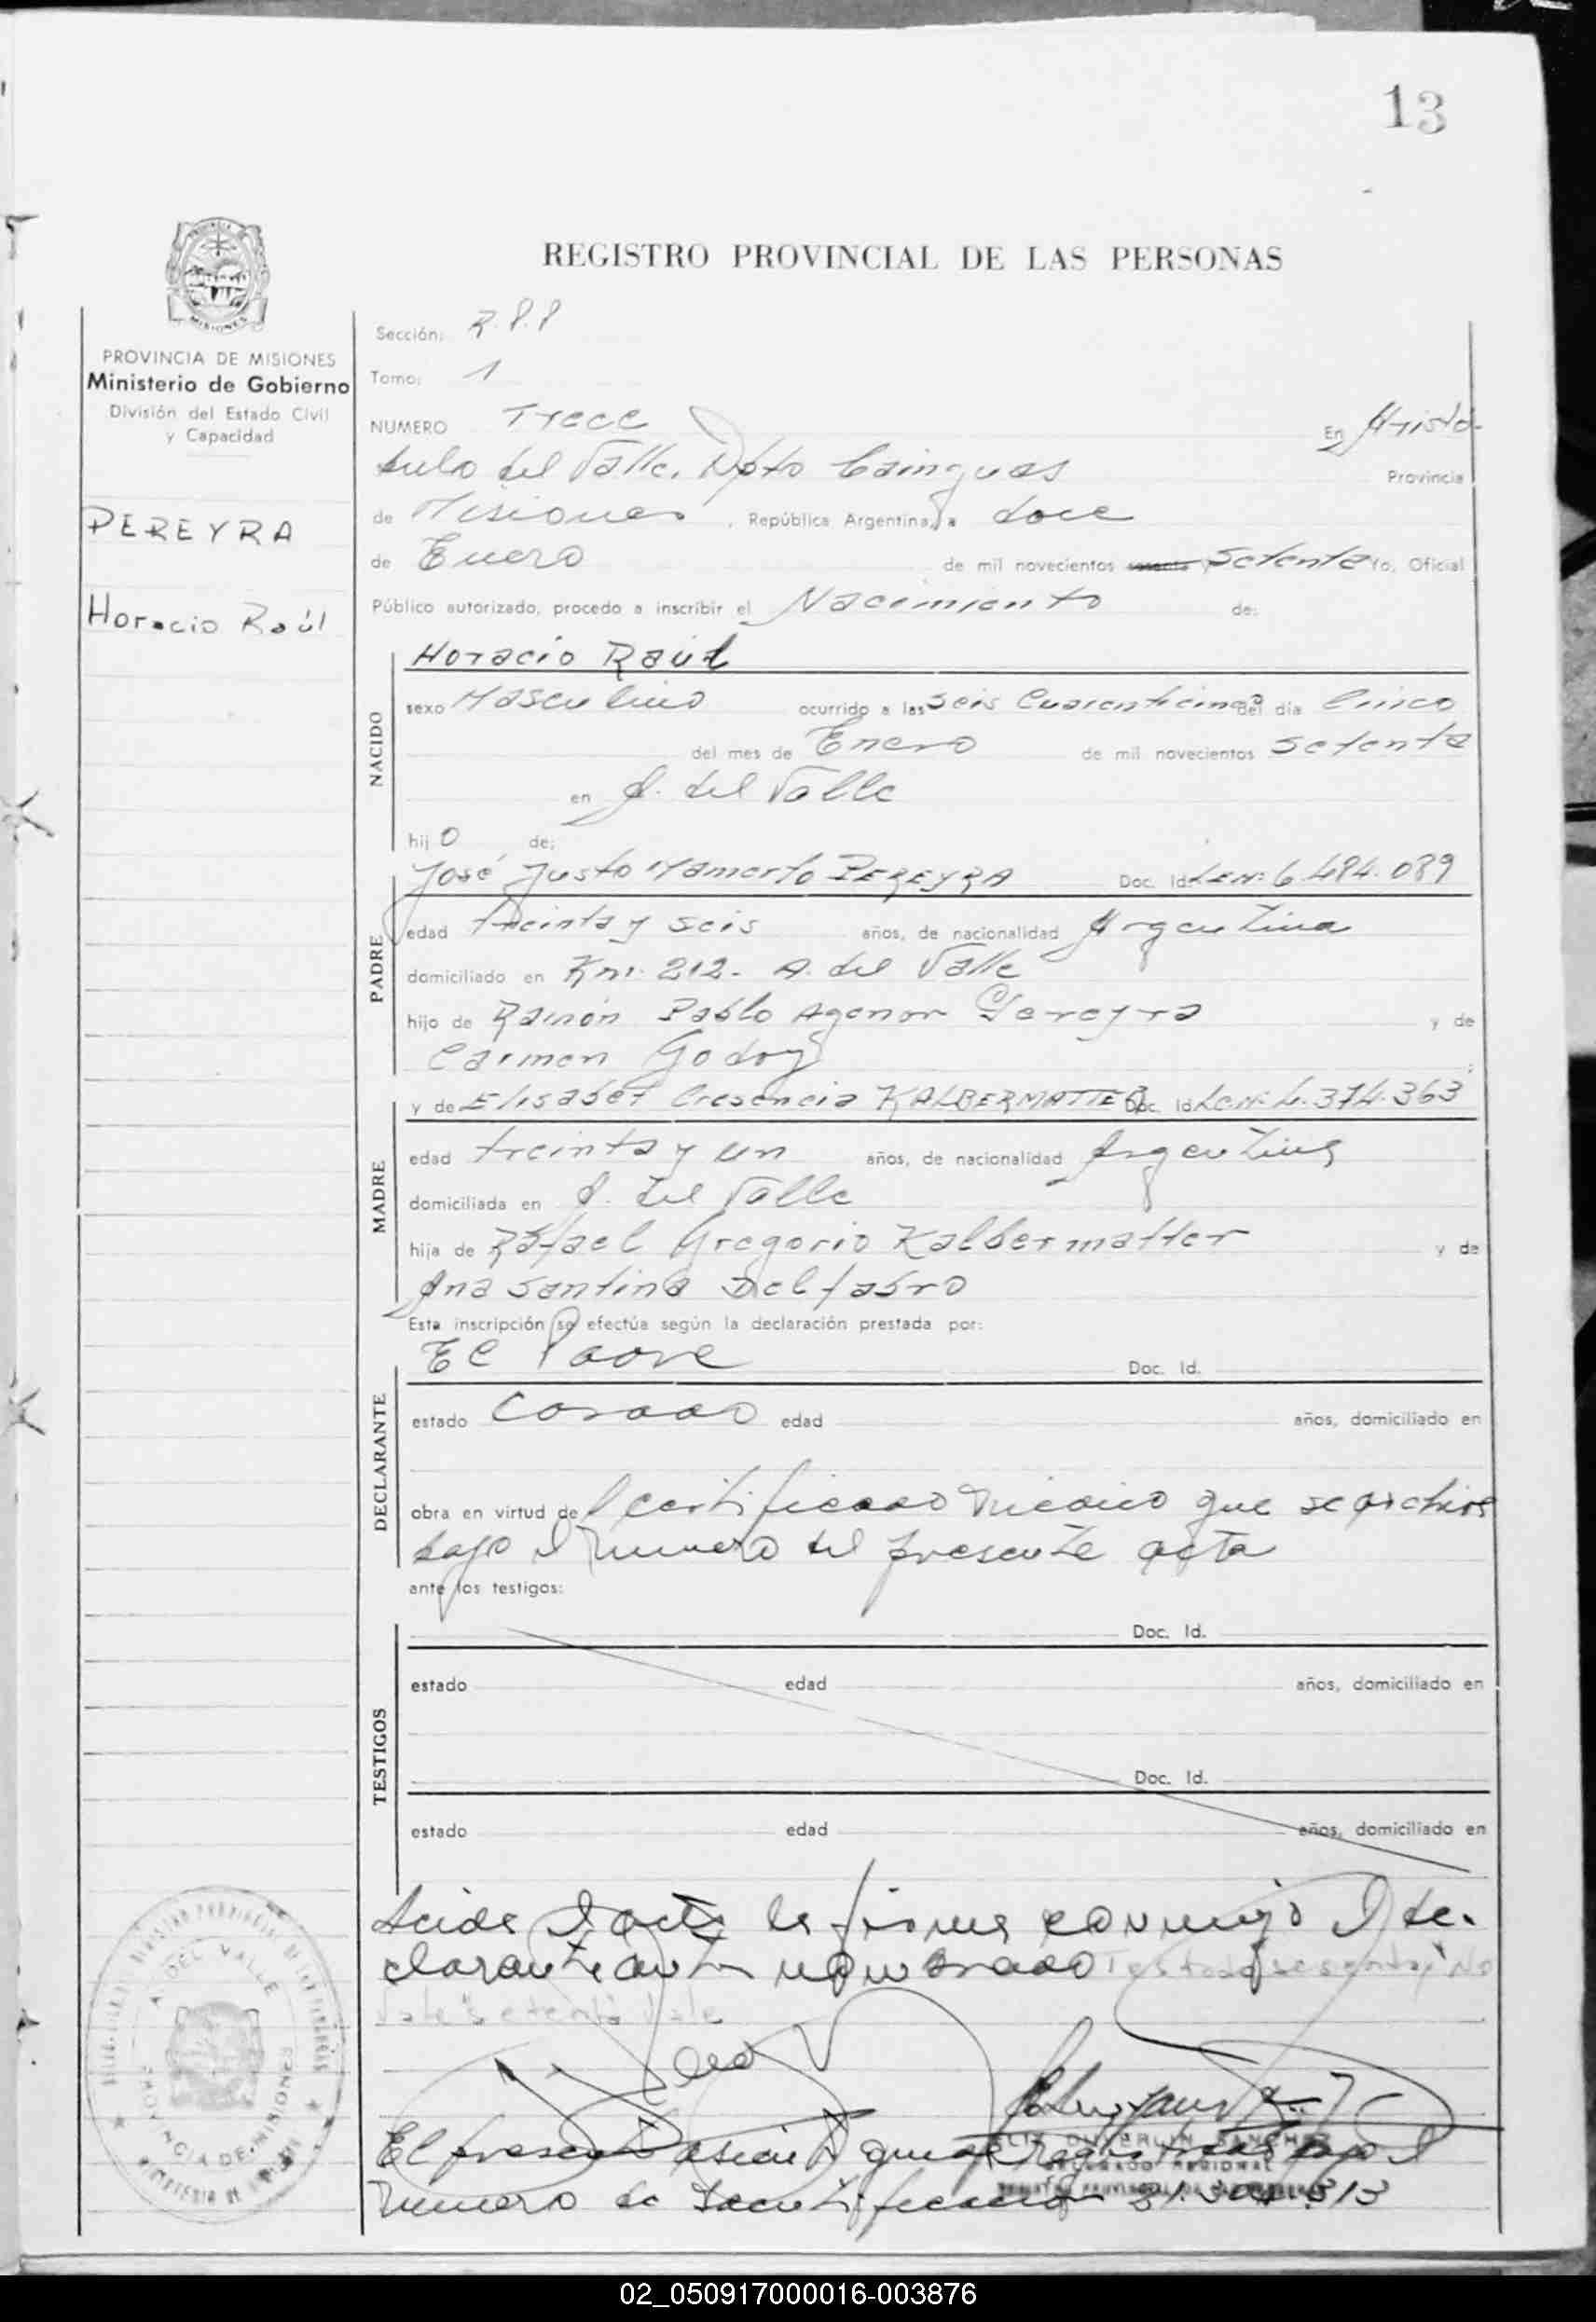 13
REGISTRO PROVINCIAL DE LAS PERSONAS
MISIONES
PROVINCIA DE MISIONES
Ministerio de Gobierno
División del Estado Civil
y Capacidad
PEREYRA
Horacio Raúl
Sección: R.P.P
Tomo: 1
NUMERO Trece En Aristó-
bulo del Valle. Dpto Cainguas Provincia
de Misiones, República Argentina, a doce
de Enero de mil novecientos sesenta y setenta Yo, Oficial
Público autorizado, procedo a inscribir el Nacimiento de:
NACIDO
Horacio Raúl
sexo Masculino ocurrido a las seis Cuarenticinco del día Cinco
del mes de Enero de mil novecientos setenta
en A. del Valle
hijo de:
PADRE
José Justo Mamerto PEREYRA Doc. Id. L.E.Nº 6.484.089
edad treinta y seis años, de nacionalidad Argentina
domiciliado en Km. 212- A. del Valle
hijo de Ramón Pablo Agenor Pereyra y de
Carmen Godoy
MADRE
y de Elisabet Cresencia KALBERMATTER Doc. Id. L.C.Nº 4.374.363
edad treinta y un años, de nacionalidad Argentina
domiciliada en A. del Valle
hija de Rafael Gregorio Kalbermatter y de
Ana Santina Delfabro
Esta inscripción se efectúa según la declaración prestada por:
DECLARANTE
El Padre Doc. Id.
estado Casado edad años, domiciliado en
obra en virtud del certificado médico que se archiva
bajo el número del presente acta
ante los testigos:
TESTIGOS
Doc. Id.
estado edad años, domiciliado en
Doc. Id.
estado edad años, domiciliado en
Leida el acta la firma conmigo el de-
clarante antes nombrado Testado "sesenta y" No
Vale "setenta" Vale
A. DEL VALLE
PROVINCIA DE MISIONES
El presente asiento queda registrado bajo el
número de identificación 21.304.313
DELEGADO REGIONAL
REGISTRO PROVINCIAL DE LAS PERSONAS
02_050917000016-003876